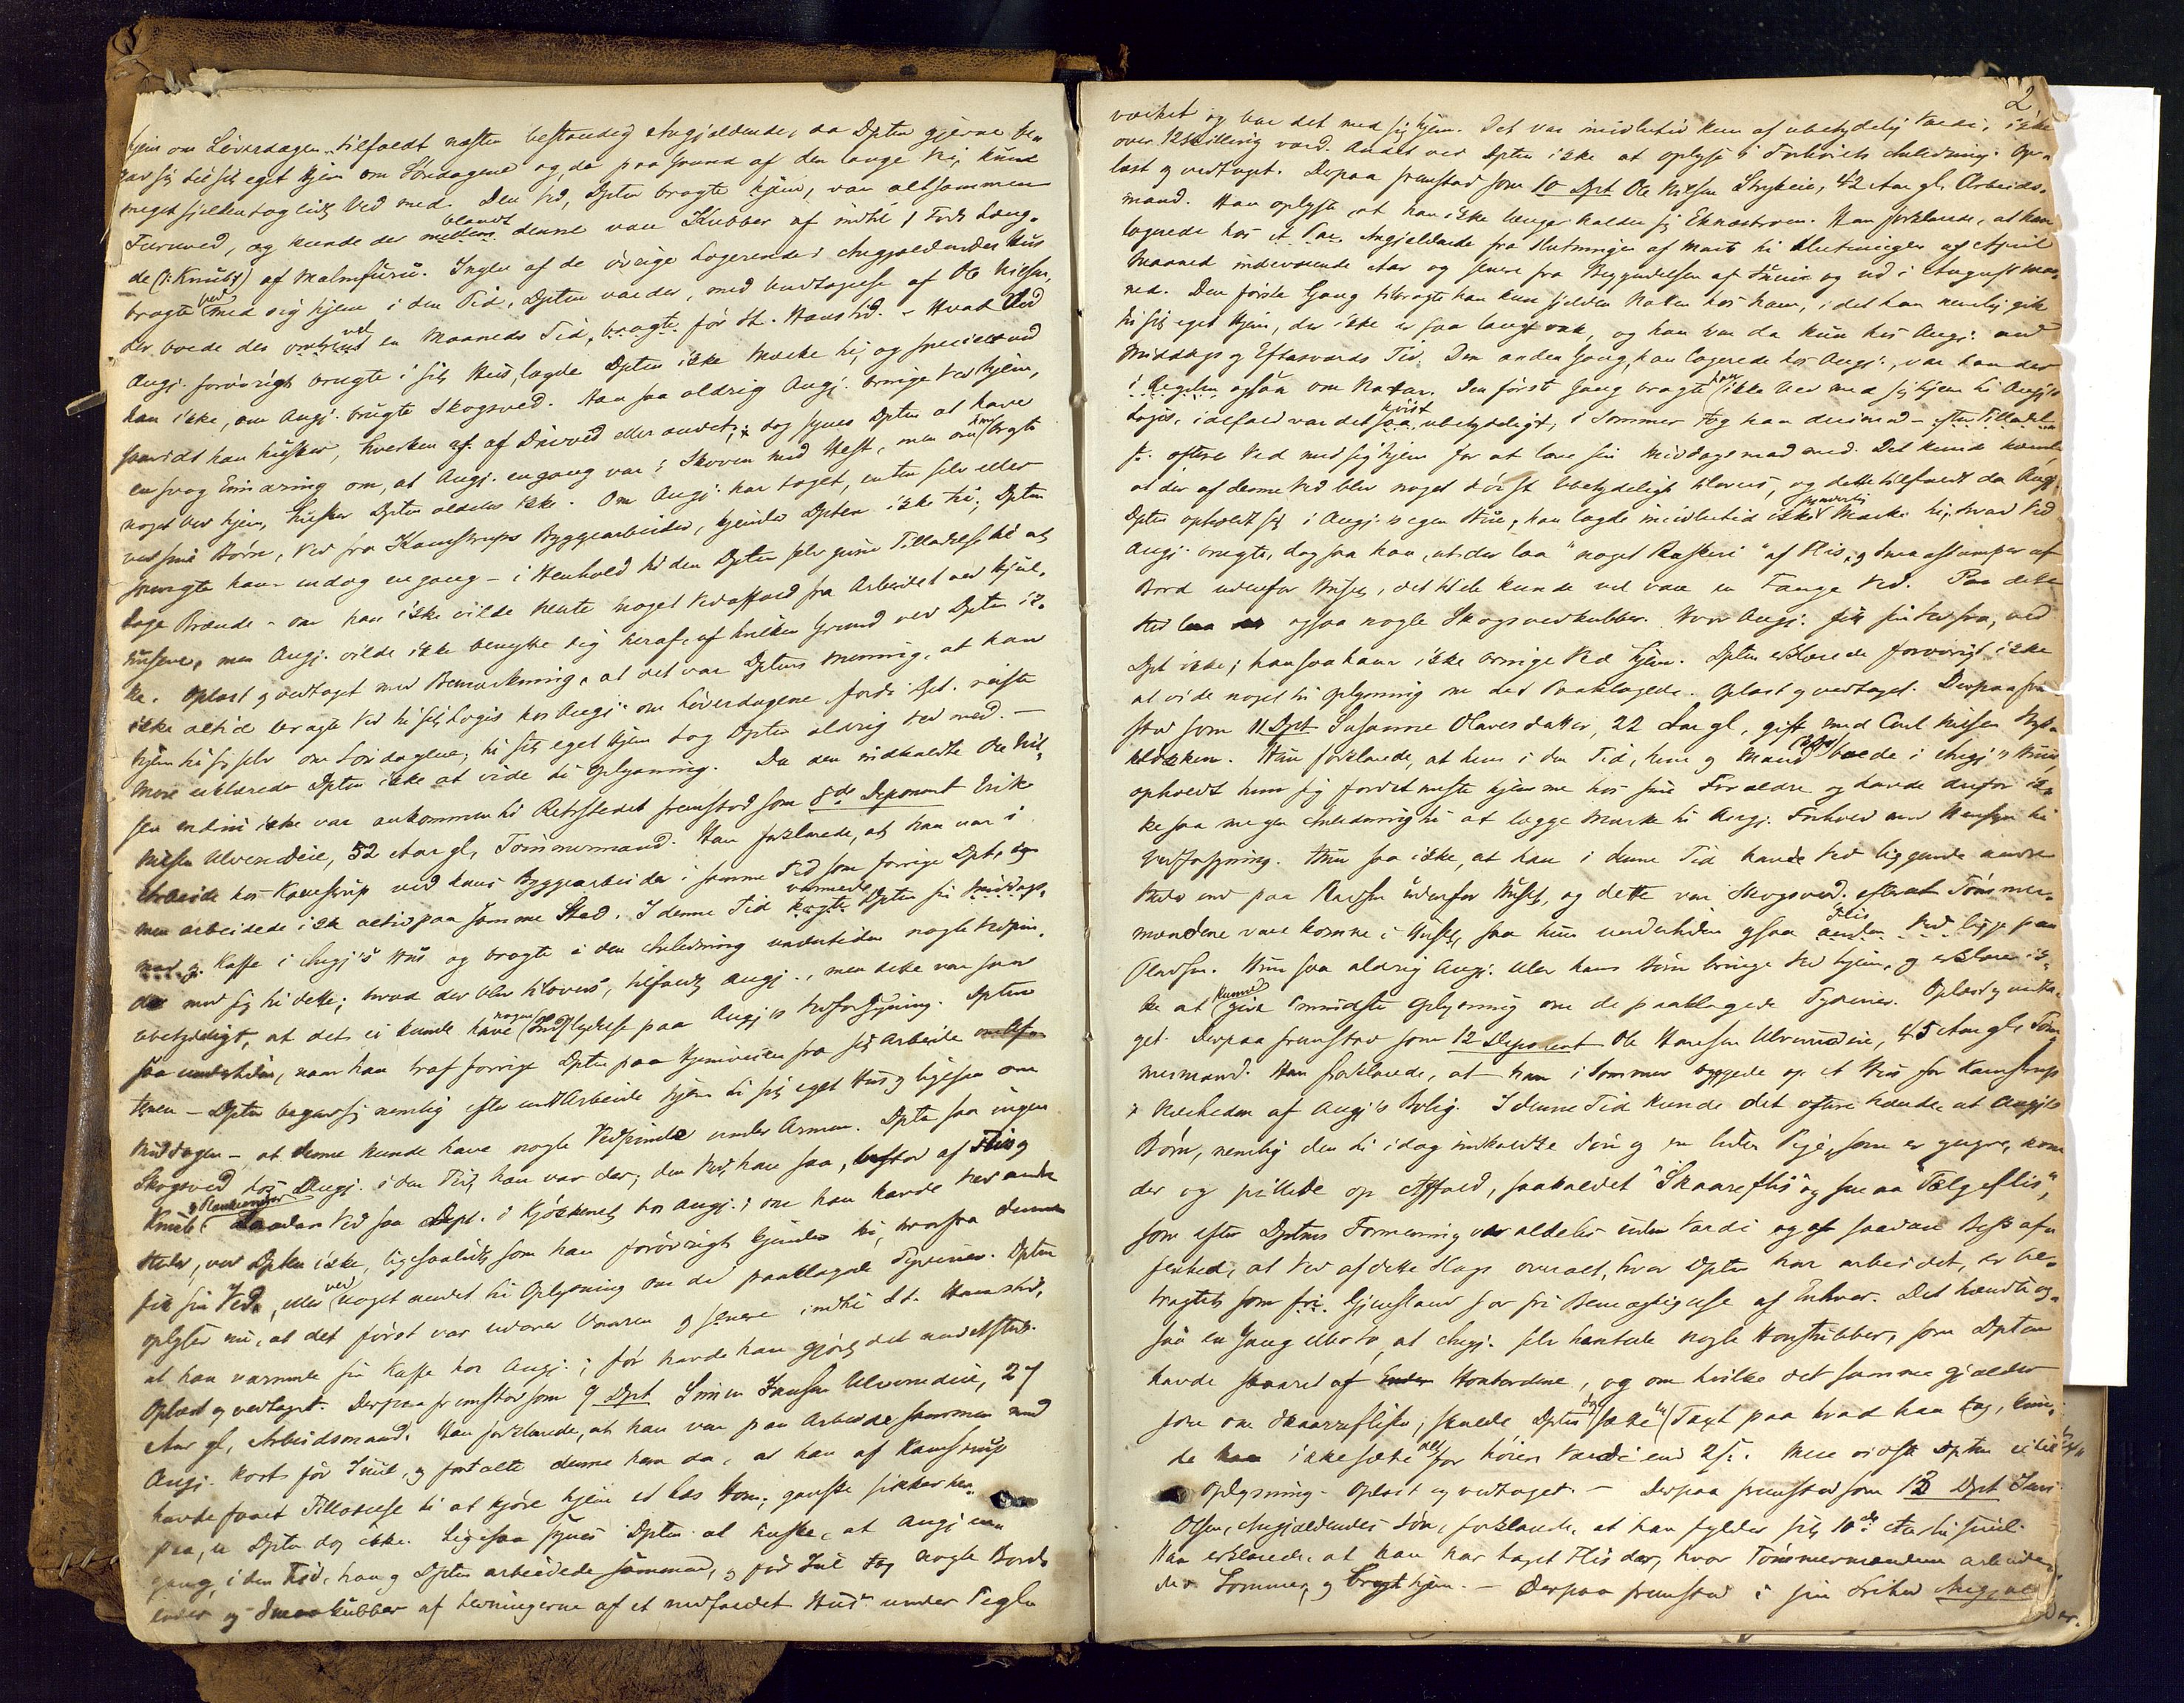 hjem om Löverdagen tilfaldt næsten bestandig Angjældende, da Dptn gjerne be„
gav sig til sit eget Hjem om Söndagene og da paa Grund af den lange Vei, kund
meget sjelden tog lidt Ved med. Den Ved, Dptn bragte hjem, var altsammen
Furuved, og kunde der blandt denne være Kubber af indtil 1 Fods Læng„
de (: Knubb) af Malmfuru. Ingen af de övrige Logerende i Angjældendes Hus
bragte Ved med sig hjem i den Tid, Dptn var der, med Undtagelse af Ole Nielsen,
der boede der vel en Maaneds Tid, bragte för St. Hanstid. - Hvad Ved
Angj. forövrigt brugte i sit Hus, lagde Dptn ikke Mærke til, og specielt ved
han ikke, om Angj. brugte Skogsved. Han saa aldrig Angj. bringe Ved hjem,
saavidt han husker, hverken af Drivved eller andet; dog synes Dptn at have
en svag Erindring om, at Angj. engang var i Skoven med Hest, men om han bragte
noget Ved hjem, husker Dptn aldeles ikke. Om Angj. har taget, enten selv eller
ved sine Börn, Ved fra Kamstrups Byggearbeider, kjender Dptn ikke til; Dptn
spurgte ham endog engang - i Henhold til den Dptn selv givne Tilladelse til at
tage Brænde - om han ikke vilde hente noget Vedaffald fra Arbeidet ved Hjul„
husene, men Angj. vilde ikke benytte sig heraf, af hvilken Grund ved Dptn ik„
ke. Oplæst og vedtaget med Bemærkning, at det var Dptns Mening, at han
ikke altid bragte Ved til sit Logis hos Angj. om Löverdagene, fordi Dpt. reiste
hjem til sig selv om Söndagene; til sit eget Hjem tog Dptn aldrig Ved med. -
Mere erklærede Dptn ikke at vide til Oplysning. Da den indkaldte Ole Niel„
sen endnu ikke var ankommen til Retsstedet fremstod som 8de Deponent Erik
Nielsen Ulvendeie, 52 Aar gl, Tömmermand. Han forklarede, at han var i
Arbeide hos Kamstrup ved hans Byggearbeider i samme Tid som forrige Dpt,
men arbeidede ikke altid paa samme Sted. I denne Tid varmede Dptn sin Middags„
mad og Kaffe i Angj's Hus og bragte i den Anledning undertiden nogle Vedpin„
de med sig til dette; hvad der blev tilovers, tilfaldt Angj., men dette var saa
ubetydeligt, at det ei kunde have nogen Indflydelse paa Angj's Vedforsyning. Dptn
saa undertiden, naar han traf forrige Dptn paa Hjemveien fra sit Arbeide om Af„
tenen - Dptn begav sig nemlig efter endt Arbeide hjem til sit eget Hus og ligesaa om
Middagen - at denne kunde have nogle Vedpinde under Armen. Dptn saa ingen
Skogsved hos Angj. i den Tid, han var der; den Ved, han saa, bestod af Flis og
Knub og Plankeender. Saadan Ved saa Dpt. i Kjökkenet hos Angj.; om han havde Ved andre
Steder, ved Dptn ikke, ligesaalidt som han forövrigt kjender til, hvorfra denne
fik sin Ved, eller ved noget andet til Oplysning om de paaklagede Tyverier. Dptn
oplyser nu, at det först var udover Vaaren og senere indtil St. Hanstid,
at han varmede sin Kaffe hos Angj.; för havde han gjort det andetsteds.
Oplæst og vedtaget. Derpaa fremstod som 9 Dpt Simen Hansen Ulvendeie, 27
Aar gl, Arbeidsmand. Han forklarede, at han var paa Arbeide sammen med
Angj. kort för Juul, og fortalte denne ham da, at han af Kamstrup
havde faaet Tilladelse til at kjöre hjem et Læs Hon; ganske sikker her„
paa, er Dptn dog ikke. Ligesaa synes Dptn at huske, at Angj. en
Gang, i den Tid, han og Dptn arbeidede sammen, og för Jul tog nogle Bord„
ender og Smaakubber af Levningerne af et nedfaldet Hus under Tegl„
2.
værket og bar det med sig hjem. Det var imidlertid kun af ubetydelig Værdi, ikke
over 12 Skilling værd. Andet ved Dptn ikke at oplyse i Forhörets Anledning. Op„
læst og vedtaget. Derpaa fremstod som 10 Dpt Ole Nilsen Strykeie, 42 Aar gl, Arbeids„
mand. Han oplyste at han ikke længer kalder sig Eknæstrøen. Han forklarede, at han
logerede hos et Par, Angjældende fra Slutningen af Marts til Slutningen af April
Maaned indeværende Aar og senere fra Begyndelsen af Junie og ud i August maa„
ned. Den förste Gang tilbragte han kun sjelden Natten hos ham, idet han nemlig gik
til sit eget Hjem, der ikke er saa langt væk, og han var da kun hos Angj. ved
Middags og Eftasvords Tid. Den anden Gang, han logerede hos Angj., var han der
i Regelen ogsaa om Natten. Den först Gang bragte han ikke Ved med sig hjem til Angj's
Logis, ialfald var det saa ubetydeligt, i Sommer tog han derimod - efter Tilladel
se oftere Ved med sig hjem for at lave sin Middagsmad med. Det kunde hænde,
at der af denne Ved blev noget höist ubetydeligt tilovers, og dette tilfaldt da Angj.
Dptn opholdt sig i Angj's egen Stue, han lagde imidlertid ikke synderlig Mærke til, hvad Ved
Angj. brugte, dog saa han, at der laa "noget Raskeri" af Flis, og Smaastumper af
Bord udenfor Huset, det Hele kunde vel være en Fange Ved. Paa dette
Sted laa ogsaa nogle Skogsvedkubber. Hvor Angj. fik sin Ved fra, ved
Dpt ikke; han saa ham ikke bringe Ved hjem. Dptn erklærede forövrigt ikke
at vide noget til Oplysning om det Paaklagede. Oplæst og vedtaget. Derpaa frem
stod som 11 Dpt Susanne Olavesdatter, 22 Aar gl, gift med Carl Nielsen
Hun forklarede, at hun i den Tid, hun og Mand boede i Angj's Hus,
opholdt hun sig fordetmeste hjemme hos sine Forældre og havde derfor ik„
ke saa megen Anledning til at lægge Mærke til Angj. Forhold med Hensyn til
Vedforsyning. Hun saa ikke, at han i denne Tid havde Ved liggende andre
Steder end paa Pladsen udenfor Huset, og dette var Skogsved. Efterat Tömmer„
mændene vare komne i Huset, saa hun undertiden ogsaa Flis ligge paa
Pladsen. Hun saa aldrig Angj. eller hans Sön bringe Ved hjem, og erklærer ik„
ke at kunne give mindste Oplysning om de paaklagede Tyverier. Oplæst og vedta„
get. Derpaa fremstod som 12 Deponent Ole Hansen Ulvendeie, 45 Aar gl, Töm
mermand. Han forklarede, at han i Sommer byggede op et Hus for Kamstrup
i Nærheden af Angj's Bolig. I denne Tid kunde det oftere hænde at Angj's
Börn, nemlig den til idag indkaldte Sön og en liden Pige, som er yngre, kom
der og pillede op Affald, saakaldet "Skaareflis" og smaa "Tælgeflis",
som efter Dptns Formening var aldeles uden Værdi og af saadan Beskaf„
fenhed, at Ved af dette Slags overalt, hvor Dptn har arbeidet, er be„
tragtet som fri Gjenstand for fri Bemægtigelse af Enhver. Det hændte og„
saa en Gang eller to, at Angj. selv hentede nogle Honstubber, som Dptn
havde skaaret af Honbordene, og om hvilke det samme gjælder
som om Skaareflisen; skulde Dptn sætte en Taxt paa hvad han tog, kun„
de han ikke sætte det for höiere Værdi end 2 s. Mere vidste Dptn ei til
Oplysning. Oplæst og vedtaget. - Derpaa fremstod som 13 Dpt
Olsen, Angjældendes Sön, forklarede, at han fylder sit 10de Aar til Juul.
Han erklærede, at han har taget Flis der, hvor Tömmermændene arbeide
de i Sommer, og bragt hjem. - Derpaa fremstod i sin Frihed Angjæl
der.